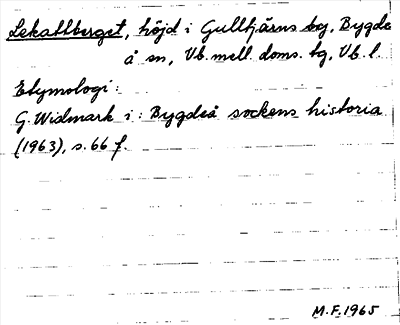 Lekattberget, höjd i Gulltjärns bg, Bygde
å sn, Vb. mell. doms. tg, Vb. l.
Etymologi:
G. Widmark i: Bygdeå sockens historia
(1963), s. 66 f.
M.F. 1965